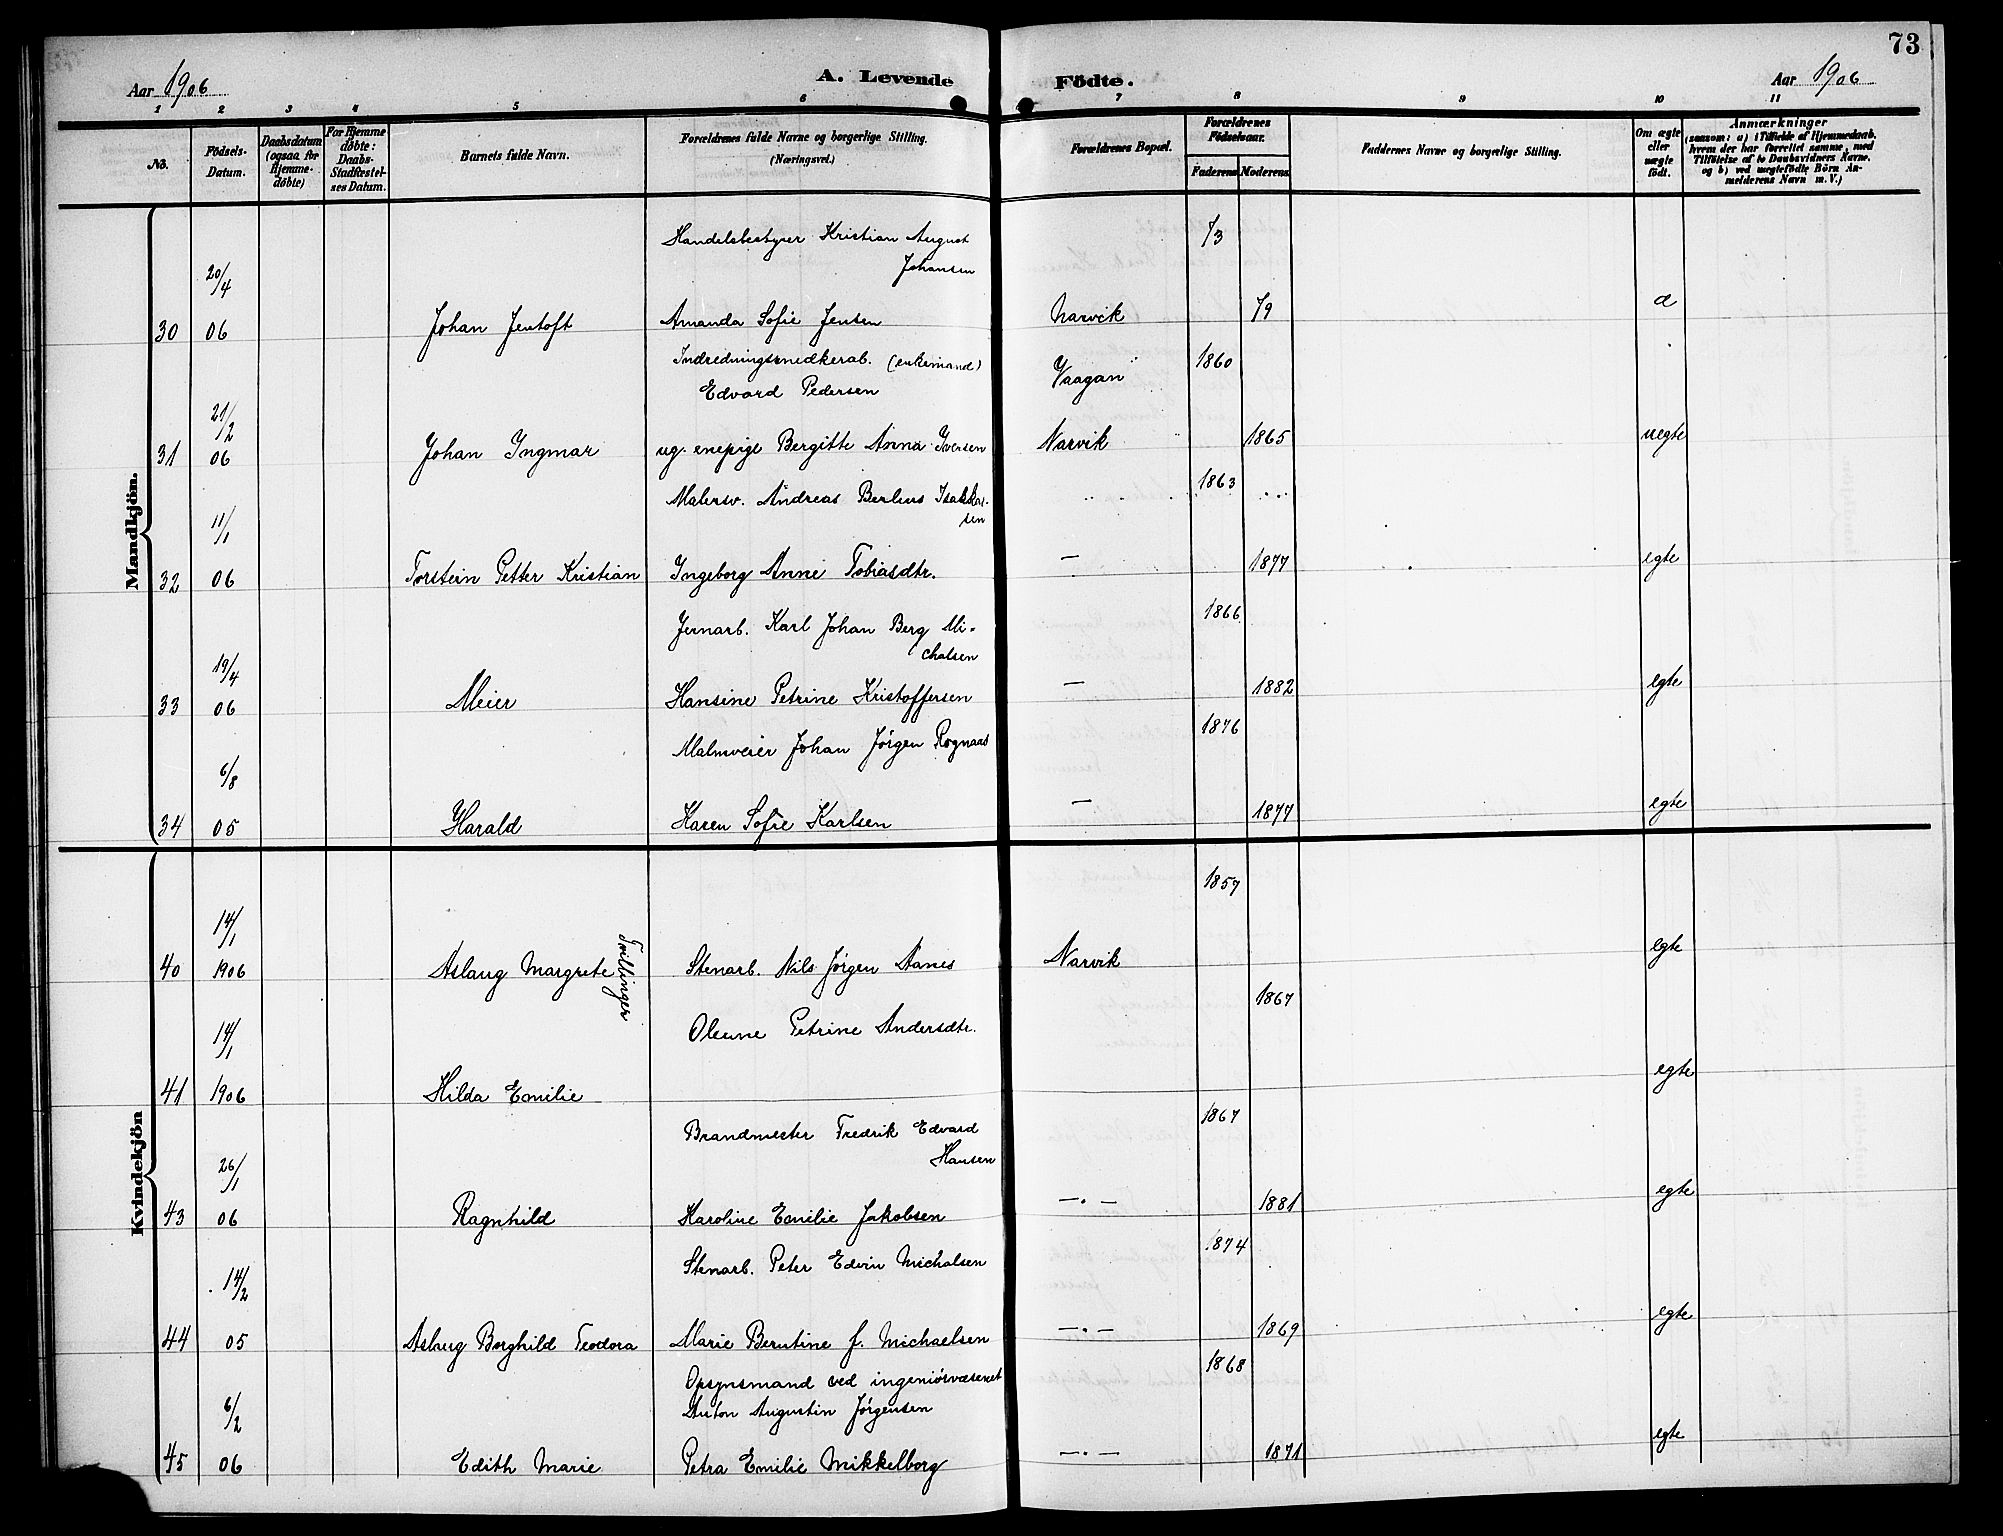 73
Aar 1906
A. Levende Födte.
Aar 1906
1 2 3 4 5 6 7 8 9 10 11
No.
Födsels-Datum.
Daabsdatum (ogsaa for Hjemme-döbte)
For Hjemme döbte: Daabs-Stadfæstel-ses Datum.
Barnets fulde Navn.
Forældrenes fulde Navne og borgerlige Stilling.
(Næringsvei.)
Forældrenes Bopæl.
Forældrenes Födselsaar.
Faderens Moderens
Faddernes Navne og borgerlige Stilling.
Om ægte eller uægte födt.
Anmærkninger
(saasom: a) i Tilfælde af Hjemmedaab,
hvem der har forrettet samme, med
Tilföielse af to Daabsvidners Navne,
og b) ved uægtefödte Börn An-
melderens Navn m. V.)
Mandkjön.
Handelsbestyrer Kristian August 73
Johansen
20/4
30 06 Johan Jentoft Amanda Sofie Jensen Narvik 79 æ
Indredningssnedkerab. (enkemand) Vaagan 1860
Edvard Pedersen
21/2
31 06 Johan Ingmar ug. enepige Bergitte Anna Iversen Narvik 1865 uegte
Malersv. Andreas Berlius Isakk-
sen 1863
11/1
32 06 Torstein Petter Kristian Ingeborg Anne Tobiasdtr. — 1877 egte
Jernarb. Karl Johan Berg Mi-
chalsen 1866
19/4
33 06 Meier Hansine Petrine Kristoffersen — 1882 egte
Malmveier Johan Jörgen Rognaas 1876
6/8
34 05 Harald Karen Sofie Karlsen — 1877 egte
Kvindekjön
1857
14/1
40 1906 Aslaug Margrete Stenarb. Nils Jörgen Aanes Narvik egte
Tvillinger
1867
14/1 Olerine Petrine Andersdtr.
41 1906 Hilda Emilie egte
Brandmester Fredrik Edvard 1867
Hansen
26/1
43 06 Ragnhild Karoline Emilie Jakobsen —.— 1881 egte
Stenarb. Peter Edvin Michalsen 1874
14/2
44 05 Aslaug Borghild Teodora Marie Berntine f. Michaelsen —.— 1869 egte
Opsynsmand ved ingeniörvæsenet 1868
6/2 Anton Augustin Jörgensen
45 06 Edith Marie Petra Emilie Mikkelborg —.— 1871 egte